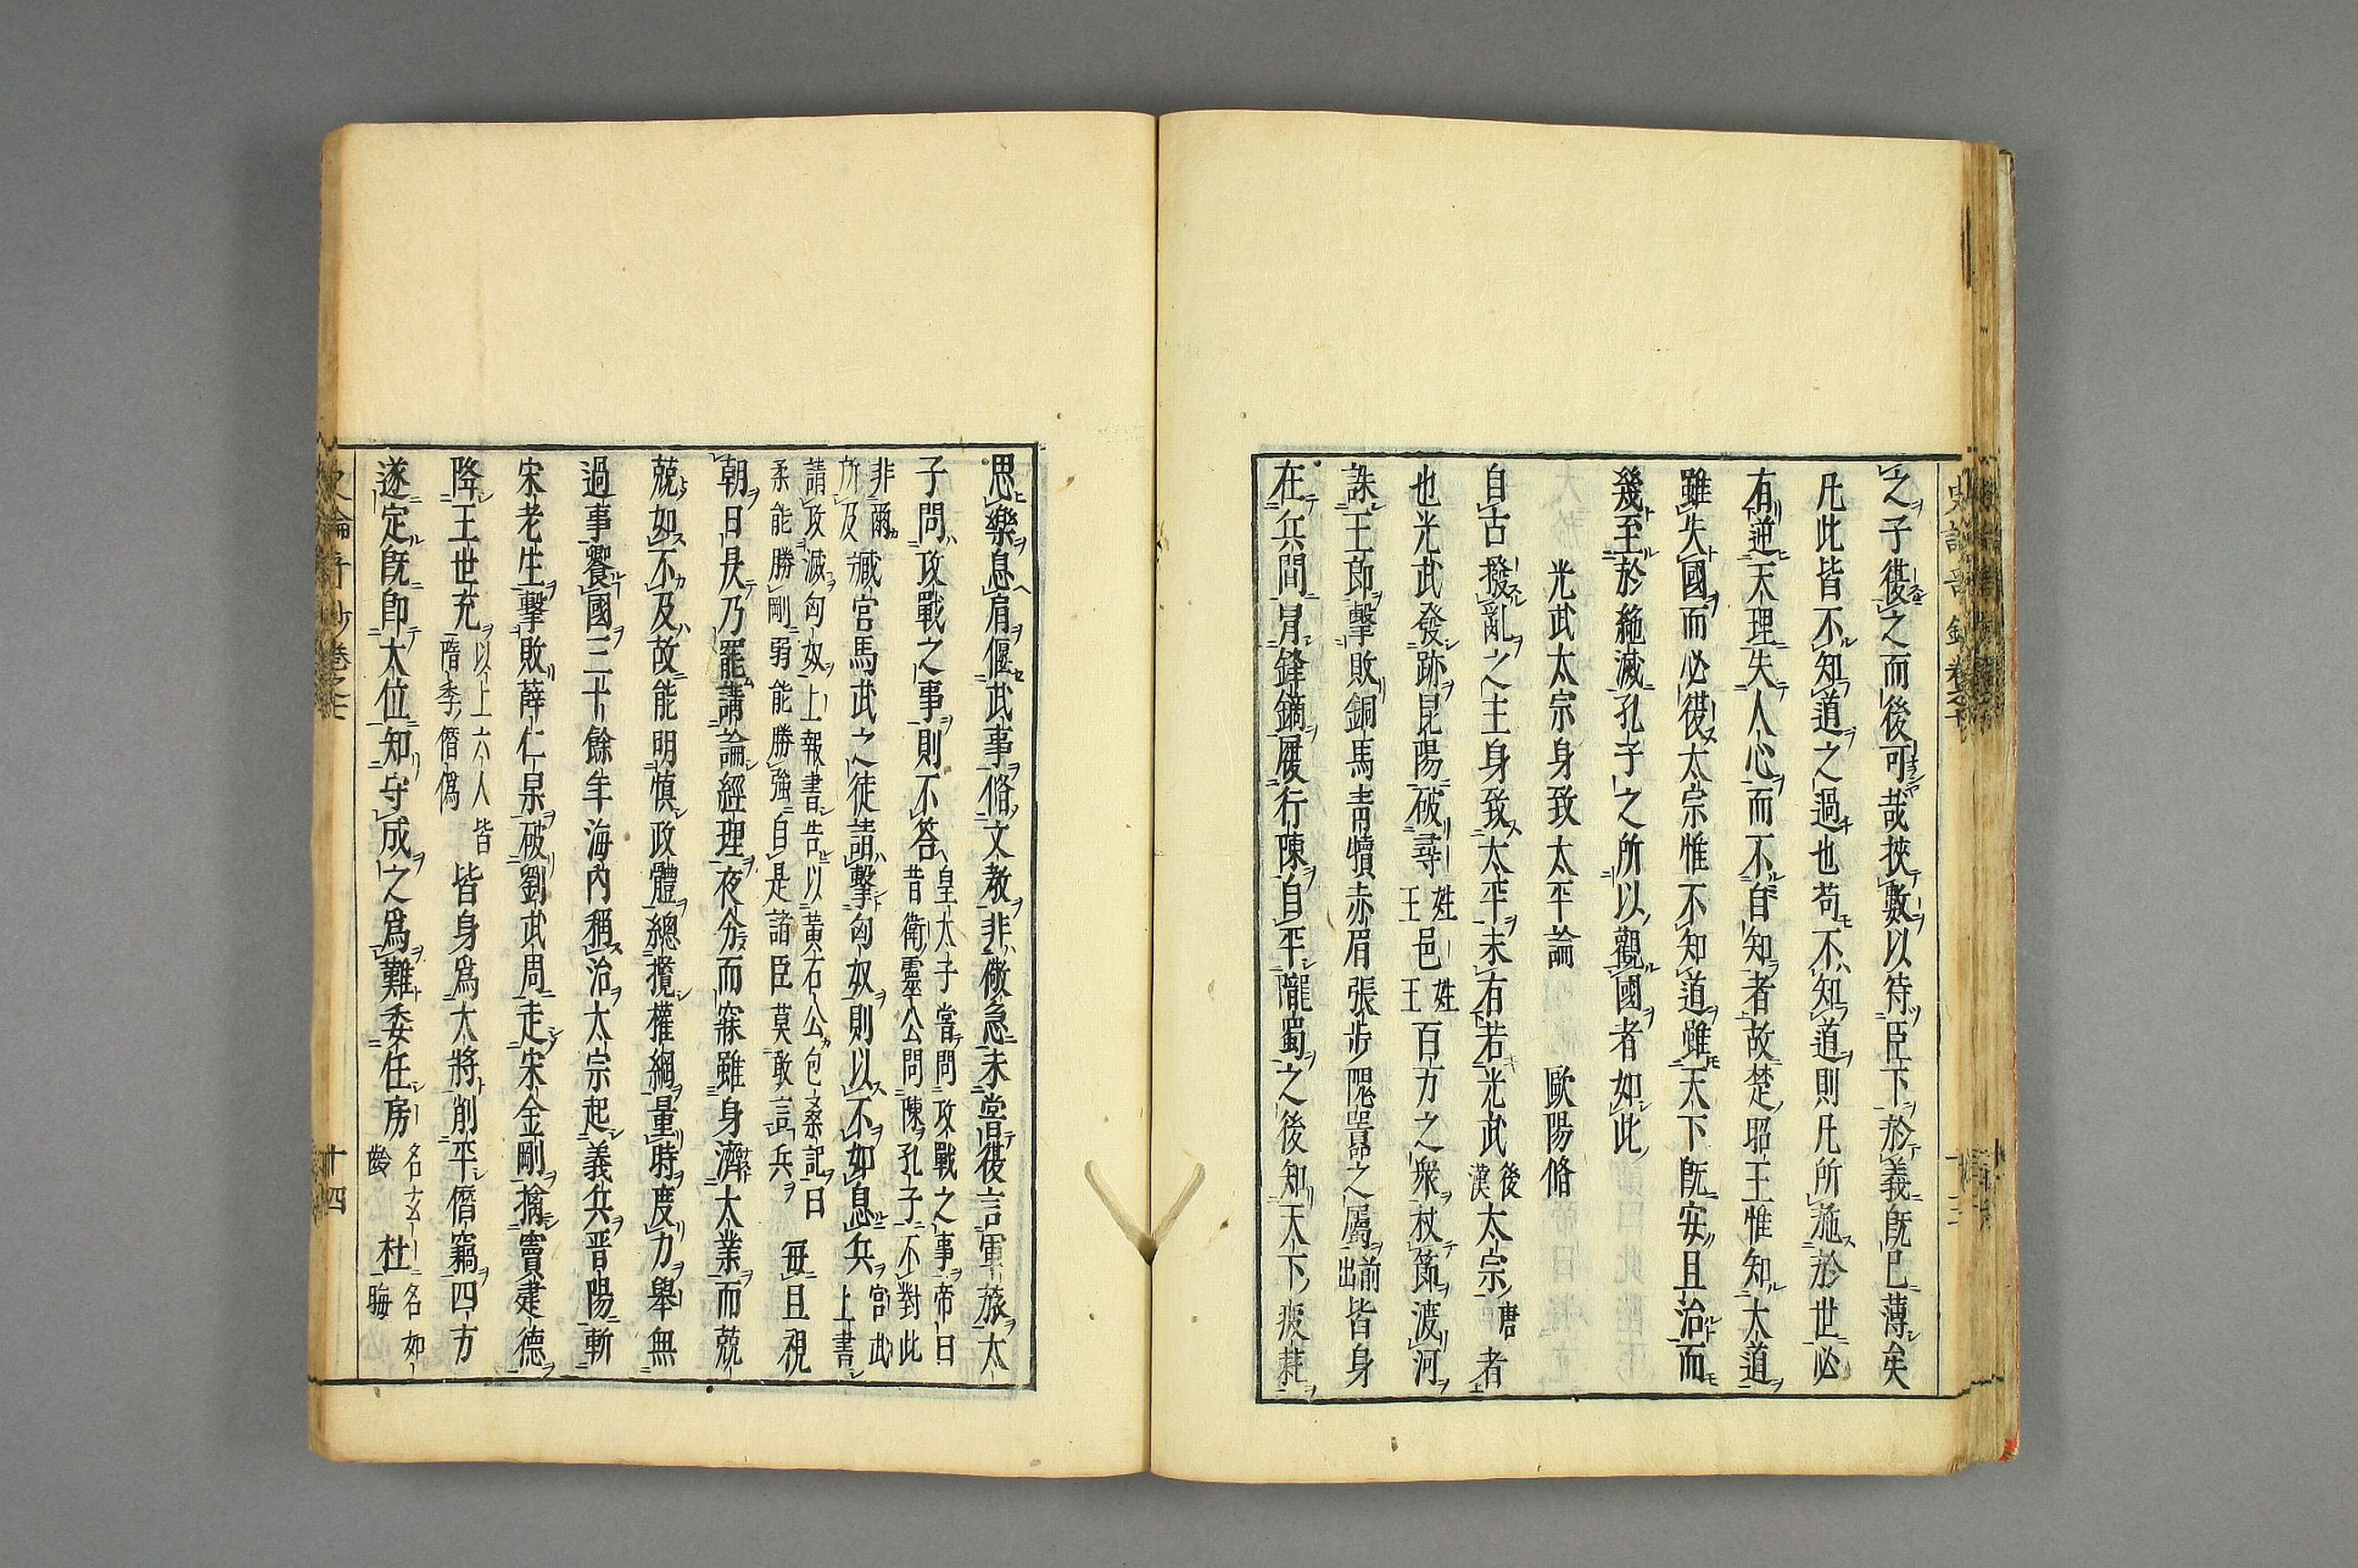 之子從之而後可哉挾數以待臣下於義既已薄矣
凡此皆不知道之過也苟不知道則凡所施於世必
有逆天理失人心而不自知者故楚昭王惟知大道
雖失國而必復太宗惟不知道雖天下既安且治而
幾至於絶滅孔子之所以觀國者如此
光武太宗身致太平論 歐陽脩
自古撥亂之主身致太平未有若光武後漢太宗唐者
也光武發跡昆陽破尋姓王邑姓王百万之衆杖節渡河
誅王郎擊敗銅馬青犢赤眉張步隗囂之屬前出皆身
在兵間冐鋒鏑履行陳自平隴蜀之後知天下疲耗
思樂息肩偃武事脩文敎非儆急未嘗復言軍旅太
子問攻戰之事則不答皇太子嘗問攻戰之事帝曰昔衛靈公問陳孔子不對此
非爾所及臧宮馬武之徒請擊匈奴則以不如息兵宮武上書
請攻滅匈奴上報書告以黃石公包桑記曰柔能勝剛弱能勝強自是諸臣莫敢言兵毎且視
朝日昃乃罷講論經理夜分而寐雖身濟大業而兢
兢如不及故能明慎政體總攬權綱量時度力舉無
過事饗國三十餘年海内稱治太宗起義兵晋陽斬
宋老生擊敗薛仁杲破劉武周走宋金剛擒竇建德
降王世充以上六人皆隋季僭偽皆身爲大將削平僭竊四方
遂定既即大位知守成之爲難委任房名玄齡杜名如晦
十四